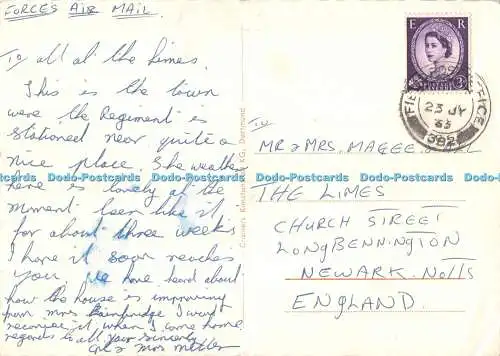 FORCES AIR MAIL
To all at the Limes.
This is the town
were the Regiment is
stationed near quite a
nice place. The weather
here is lovely at the
moment been like it
for about three weeks
I hope it soon reaches
you. We have heard about
how the house is improving
from Mrs Bainbridge I wont
reconize it when I come home.
regards to all your sincerly
Cpl & Mrs
E R
POSTAGE REVENUE
3D
FIELD POST OFFICE
23 JY
63
982
To
MR & MRS. MAGEE.
THE LIMES
CHURCH STREET
LONGBENNINGTON
NEWARK. NOTTS
ENGLAND.
Cramers Kunstanstalt KG, Dortmund
Dodo-Postcards Dodo-Postcards Dodo-Postcards Dodo-Postcards Dodo-Postcards